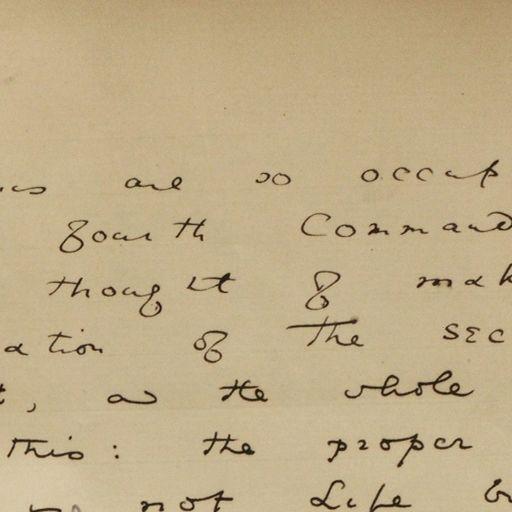 are so occup
fourth Command
thought of mak
ation of the sec
t, as the whole
this: the proper
not Life b